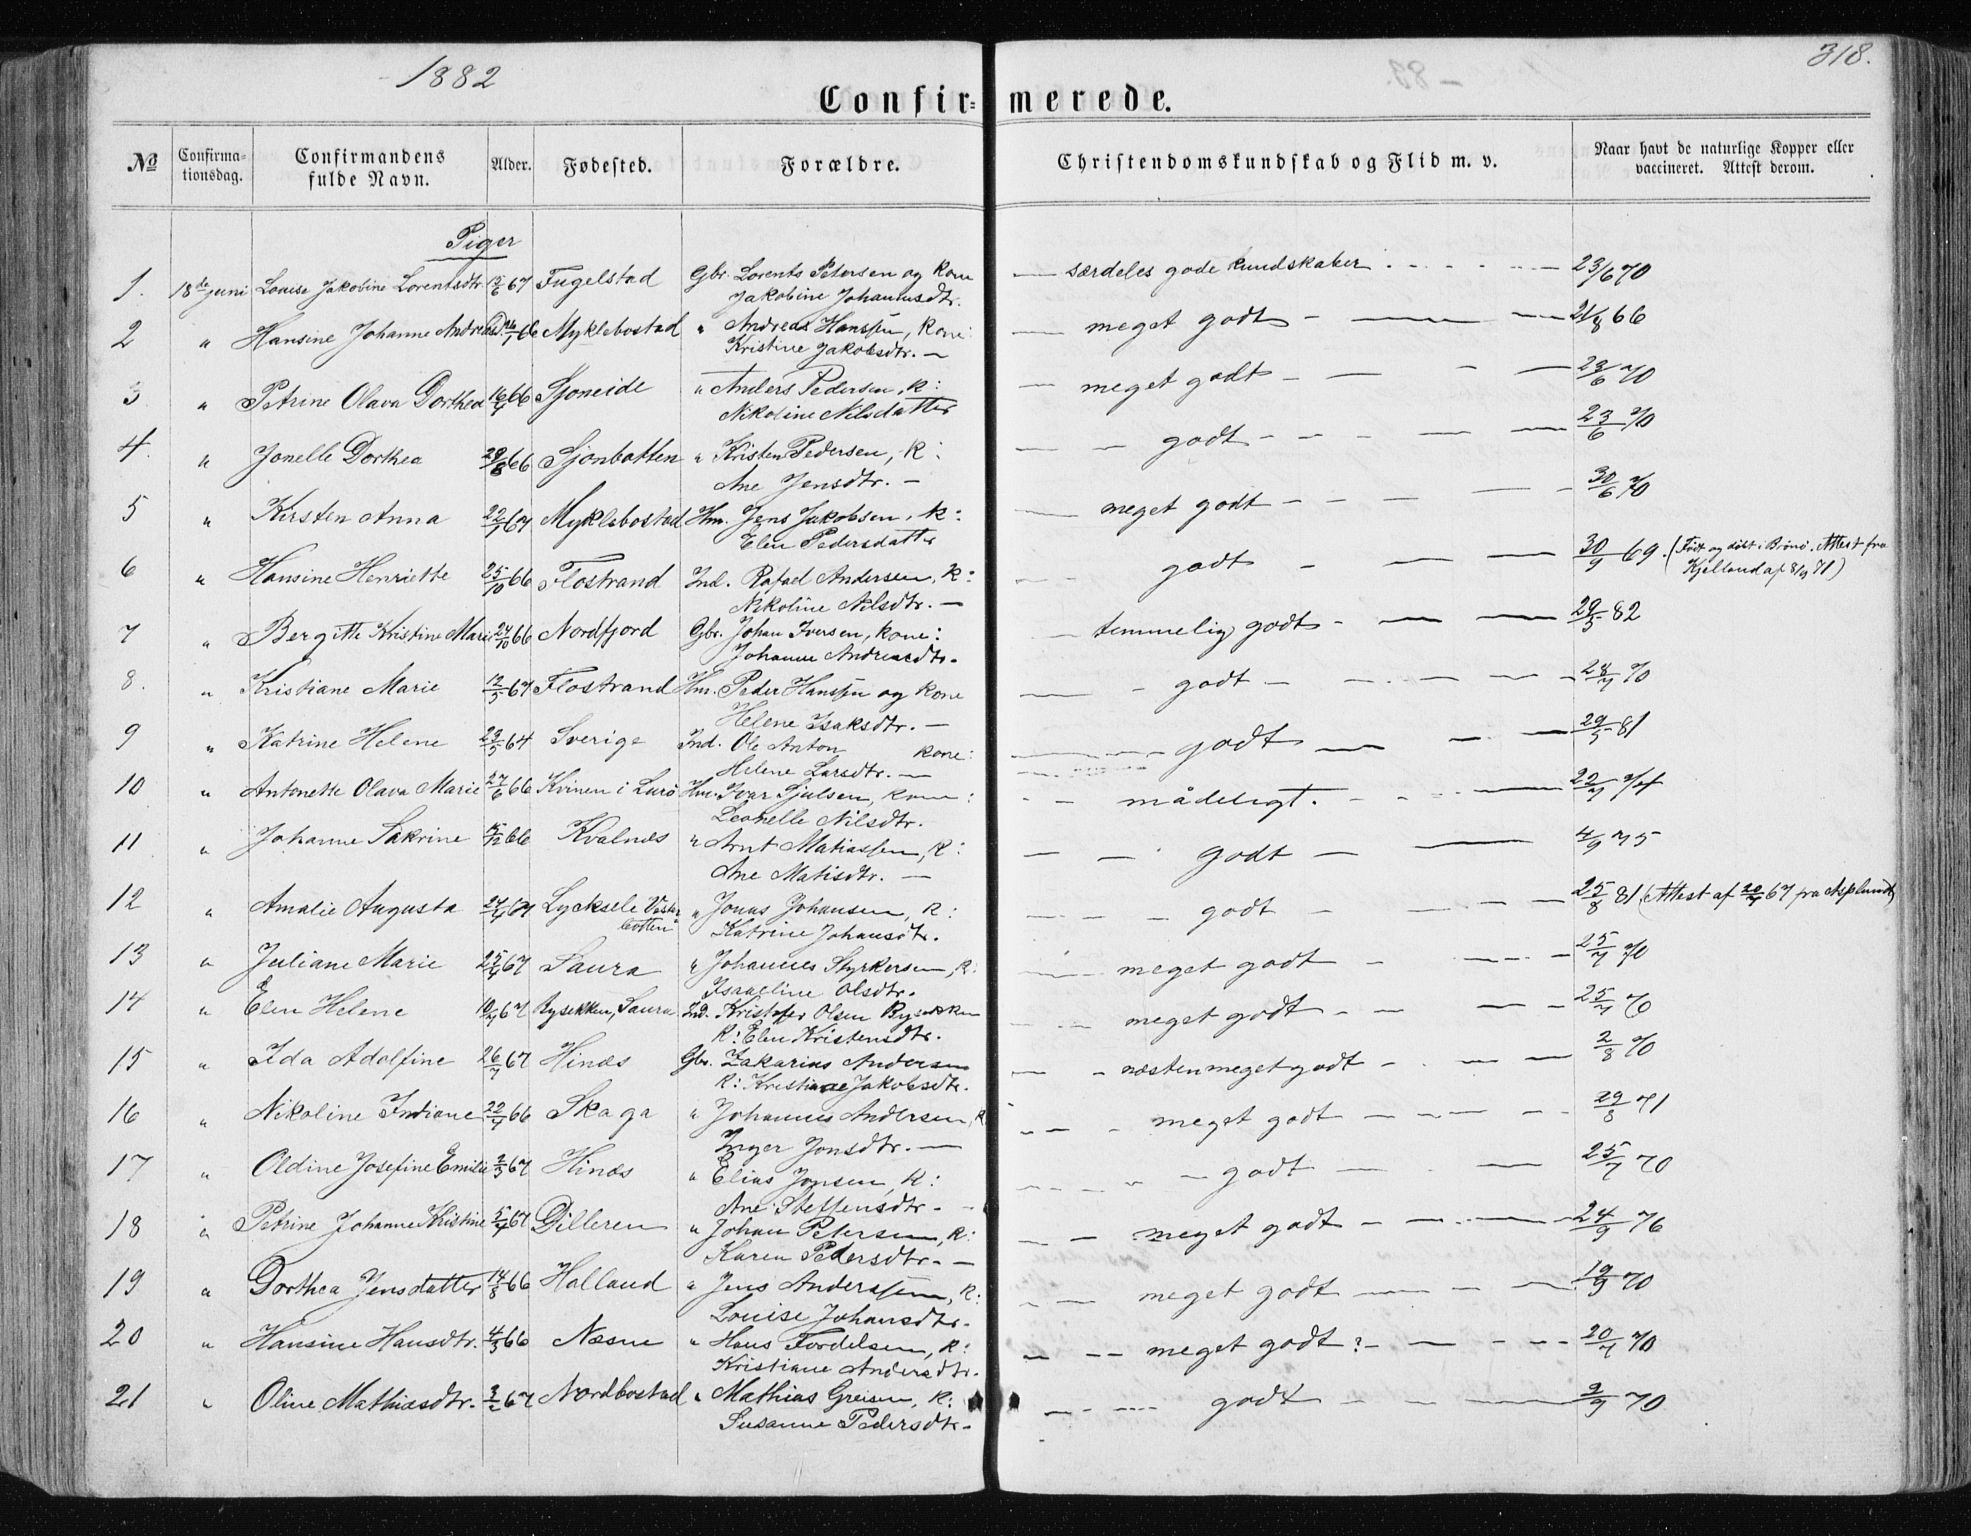 1882
318.
Confirmerede.
No
Confirmationsdag.
Confirmandens fulde Navn.
Alder.
Fødested.
Forældre.
Christendomskundskab og Flid m. v.
Naar havt de naturlige Kopper eller vaccineret. Attest derom.
Piger
1. 18de juni Louise Jakobine Lorentsdtr. 67 Fugelstad Gbr. Lorents Petersen og Kone — særdeles gode kundskaber — 23/6 70
Jakobine Johannesdtr.
2 " Hansine Johanne 66 Myklebostad " Andreas Hanssen, Kone: — meget godt — 21/8 66
Kristine Jakobsdtr. —
3 " Petrine Olava Dorthea 66 Sjoneide " Anders Pedersen, K: — meget godt — 23/6 70
Nikoline Nilsdatter
4. " Jonelle Dorthea 29/8 66 Sjonbotten " Kristen Pedersen, K: — godt — 23/6 70
Ane Jensdtr. —
5 " Kirsten Anna 22/1 67 Myklebostad Hm. Jens Jakobsen, K: — meget godt — 30/6 70
Elen Pedersdatter
6 " Hansine Henriette 25/10 66 Flostrand Ind. Rafael Andersen, K: — godt — 30/9 69 (Født og døbt i Brønø. Attest fra
Nikoline Nilsdtr. — Kjelland af 8/9 71)
7 " Bergitte Kristine Marie 24/10 66 Nordfjord Gbr. Johan Iversen, Kone: — temmelig godt — 29/5 82
Johanne Andreasdtr.
8. " Kristiane Marie 12/5 67 Flostrand Hm. Peder Hanssen og Kone — godt — 28/7 70
Helene Isaksdtr. —
9 " Katrine Helene 29/5 64 Sverige Ind. Ole Anton Kone: — godt — 29/5 81
Helene Larsdtr. —
10 " Antonette Olava Marie 27/6 66 Kvinen i Lurø Hm. Ivar Sjulsen, Kone: — mådeligt. — 22/7
Leonelle Nilsdtr.
11 " Johanne Sakrine 66 Kvalnes " Arnt Matiassen, K: — godt — 4/9 75
Ane Matisdtr. —
12 " Amalie Augusta 67 Lycksele Vesterbotten " Jonas Johansen, K: — godt — 25/8 81 (Attest af 67 fra Asplund)
Katrine Johansdtr.
13 " Juliane Marie 25/4 67 Saura " Johannes Styrkersen, K: — meget godt — 25/7 70
Isakeline Olsdtr.
14 " Elen Helene 67 Rysekken, Saura Ind. Kristofer Olsen Rysekken — meget godt — 25/7 70
K: Elen Kristensdtr.
15 " Ida Adolfine 26/7 67 Hinæs Gbr. Zakarias Andersen — næsten meget godt — 2/8 70
K: Kristiane Jakobsdtr.
16 " Nikoline Indiane 22/4 66 Skaga " Johannes Andersen, K — meget godt — 29/8 71
Inger Jonsdtr. —
17 " Oldine Josefine Emilie 2/3 67 Hinæs " Elias Jonsen, K: — godt — 25/7 70
Ane Steffensdtr. —
18 " Petrine Johanne Kristine 5/4 67 Dilleren " Johan Petersen, K: — meget godt — 24/9 76
Karen Pedersdtr. —
19 " Dorthea Jensdatter 14/8 66 Halland " Jens Anderssen, K: — meget godt — 19/9 70
Louise Johansdtr.
20 " Hansine Hansdtr. 4/3 66 Næsne " Hans Fordelsen, K: — meget godt? — 20/7 70
Kristiane Andersdtr.
21 " Oline Mathiasdtr. 3/2 67 Nordbostad " Mathias Greisen, K: — godt — 2/9 70
Susanne Pedersdtr.